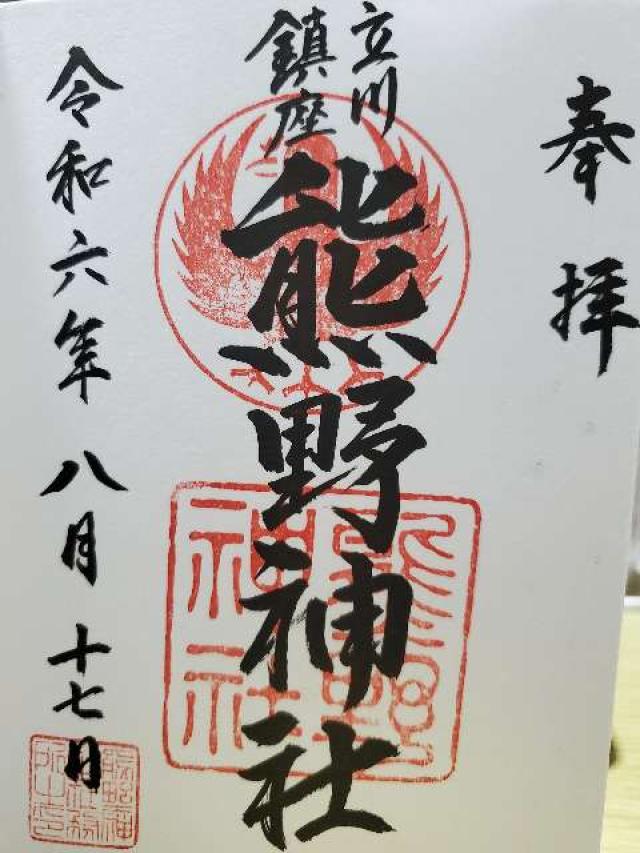 奉拝
立川
鎮座
熊野神社
令和六年 八月 十七日
熊野
神社